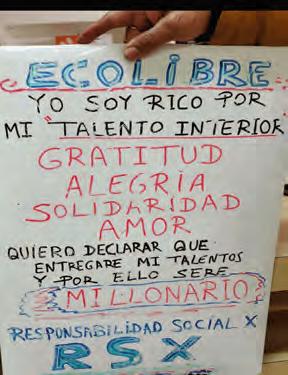 ECOLIBRE
YO SOY RICO POR
MI "TALENTO INTERIOR
GRATITUD
ALEGRIA
SOLIDARIDAD
AMOR
QUIERO DECLARAR QUE
ENTREGARE MI TALENTOS
Y POR ELLO SERE
MILLONARIO
RESPONSABILIDAD SOCIAL X
RSX